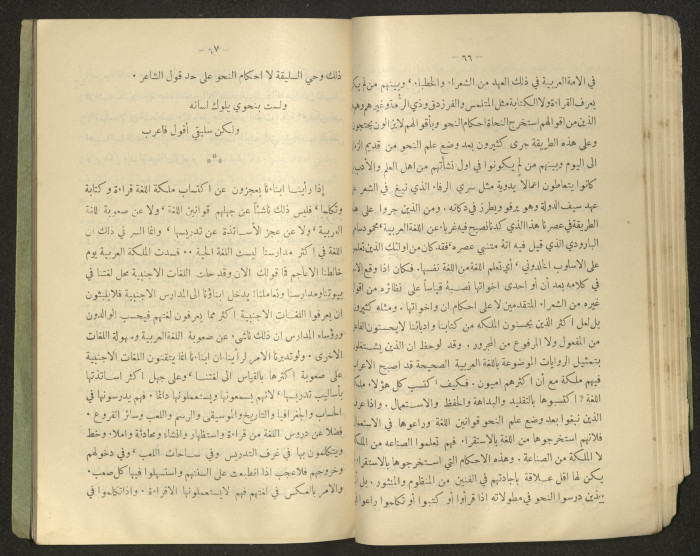 — ٦٦ —
في الامة العربية في ذلك العهد من الشعراء والخطباء ، وبينهم من لم يكن
يعرف القراءة ولا الكتابة مثل المتلمس والفرزدق وذي الرمة وغيرهم وهم
الذين من اقوالهم استخرج النحاة احكام النحو وبأقوالهم لا يزالون يحتجون
وعلى هذه الطريقة جرى كثيرون بعد وضع علم النحو من قديم الزمان
الى اليوم وبينهم من لم يكونوا في اول نشأتهم من اهل العلم والأدب
كانوا يتعاطون اعمالا يدوية مثل سري الرفاء الذي نبغ في الشعر في
عهد سيف الدولة وهو يرفو ويطرز في دكانه . ومن الذين جروا على هذه
الطريقة في عصرنا هذا الذي كدنا نصبح فيه غرباء عن اللغة العربية محمود سامي
البارودي الذي قيل فيه انه متنبي عصره ، فقد كان من اولئك الذين تعلموا
على الاسلوب الخلدوني ، أي تعلم اللغة من اللغة نفسها . فكان اذا وقع
في كلامه بعد أن أو احدى اخواتها نصبه قياساً على نظائره من اقوال
غيره من الشعراء المتقدمين لا على احكام ان واخواتها . ومثله كثيرون
بل لعل اكثر الذين يحسنون الملكة من كتابنا وادبائنا لا يحسنون
من المفعول ولا المرفوع من المجرور . وقد لوحظ ان الذين يشتغلون
بتمثيل الروايات الموضوعة باللغة العربية الصحيحة قد اصبح الاعراب
فيهم ملكة مع أن اكثرهم اميون . فكيف اكتسب كل هؤلاء ملكة
اللغة ؟ اكتسبوها بالتقليد والبداهة والحفظ والاستعمال . واذا
الذين نبغوا بعد وضع علم النحو قوانين اللغة وراعوها في الاستعمال
فلانهم استخرجوها من اللغة بالاستقراء . فهم تعلموا الصناعة من الملكة
لا الملكة من الصناعة . وهذه الاحكام التي استخرجوها بالاستقراء
يكن لها اقل علاقة بإجادتهم في الفنين من المنظوم والمنثور . بل
الذين درسوا النحو في مطولاته اذا قرأوا أو كتبوا أو تكلموا راعوا
— ٦٧ —
ذلك وحي السليقة لا احكام النحو على حد قول الشاعر .
ولست بنحوي يلوك لسانه
ولكن سليقي أقول فاعرب
***
إذا رأينا ابناءنا يعجزون عن اكتساب ملكة اللغة قراءة وكتابة
وتكلما ، فليس ذلك ناشئاً عن جهلهم قوانين اللغة ، ولا عن صعوبة اللغة
العربية ، ولا عن عجز الأساتذة عن تدريسها ، وانما السر في ذلك ان
اللغة في اكثر مدارسنا ليست اللغة الحية . . فسدت الملكة العربية يوم
خالطنا الاعاجم فما قولك الان وقد حلت اللغات الاجنبية محل لغتنا في
بيوتنا ومدارسنا وتعاملنا؟ يدخل ابناؤنا الى المدارس الاجنبية فلا يلبثون
ان يعرفوا اللغات الاجنبية اكثر مما يعرفون لغتهم فيحسب الوالدون
ورؤساء المدارس ان ذلك ناشيء عن صعوبة اللغة العربية وسهولة اللغات
الاخرى . ولو تدبرنا الامر لرأينا ان ابناءنا انما يتقنون اللغات الاجنبية
على صعوبة اكثرها بالقياس الى لغتنا ، وعلى جهل اكثر اساتذتها
بأساليب تدريسها ، لانهم يسمعونها ويستعملونها دائماً . فهم يدرسونها في
الحساب والجغرافيا والتاريخ والموسيقى والرسم واللعب وسائر الفروع .
فضلا عن دروس اللغة من قراءة واستظهار وانشاء ومحادثة واملاء وخط
ويتكلمون بها في غرف التدريس وفي ساحات اللعب ، وفي دخولهم
وخروجهم فلا عجب اذا انطبعت على السنتهم واستسهلوا فيها كل صعب .
والامر بالعكس في لغتهم فهم لا يستعملونها الا قراءة . واذا تكلموا في